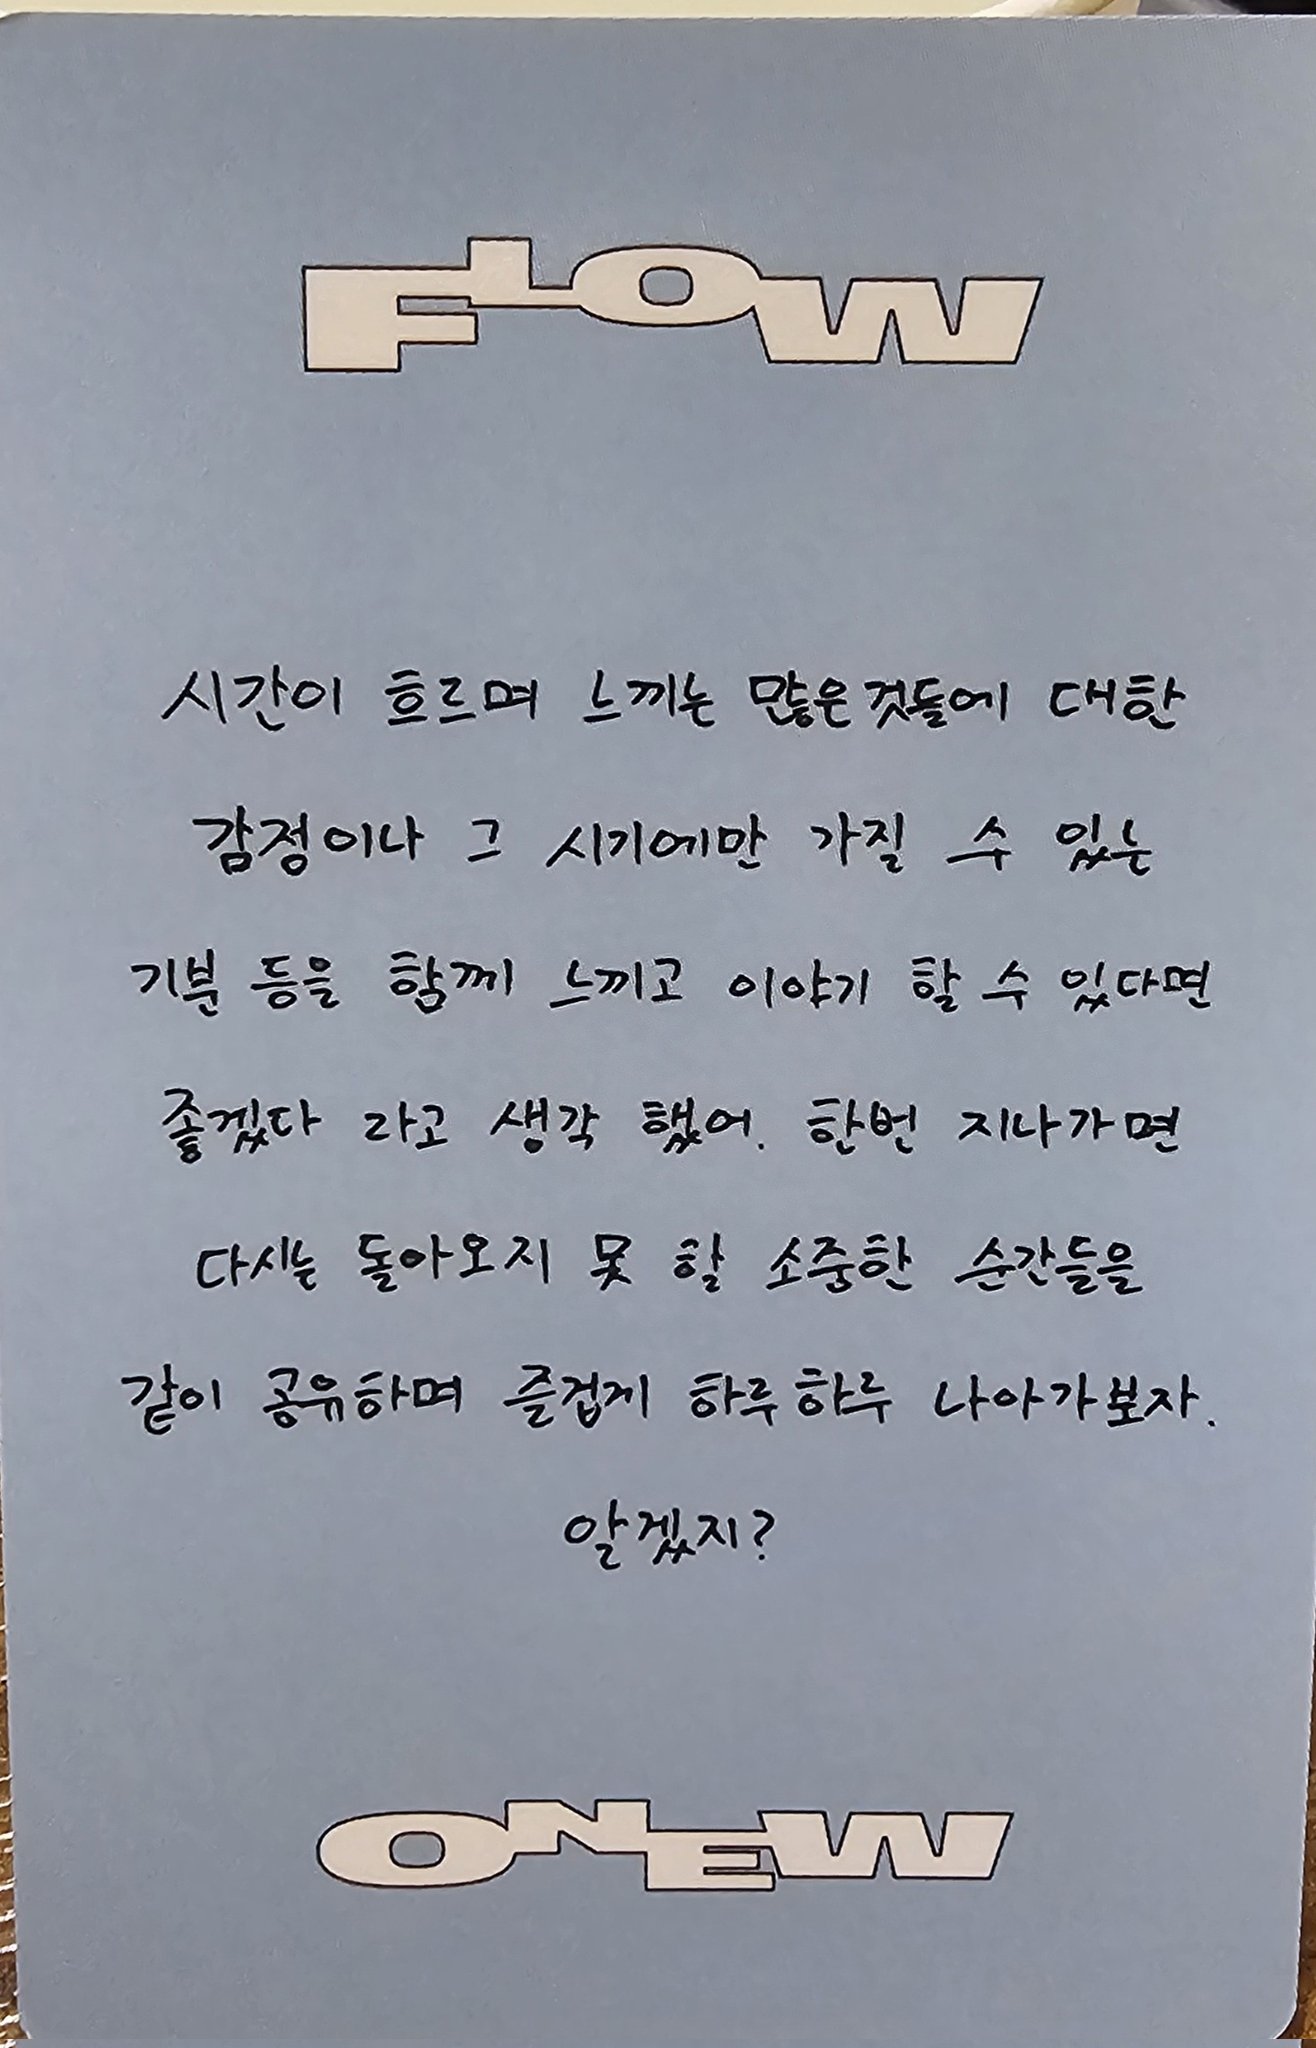 FLOW
시간이 흐르며 느끼는 많은것들에 대한
감정이나 그 시기에만 가질 수 있는
기분 등을 함께 느끼고 이야기 할 수 있다면
좋겠다 라고 생각 했어. 한번 지나가면
다시는 돌아오지 못 할 소중한 순간들을
같이 공유하며 즐겁게 하루하루 나아가보자.
알겠지?
ONEW